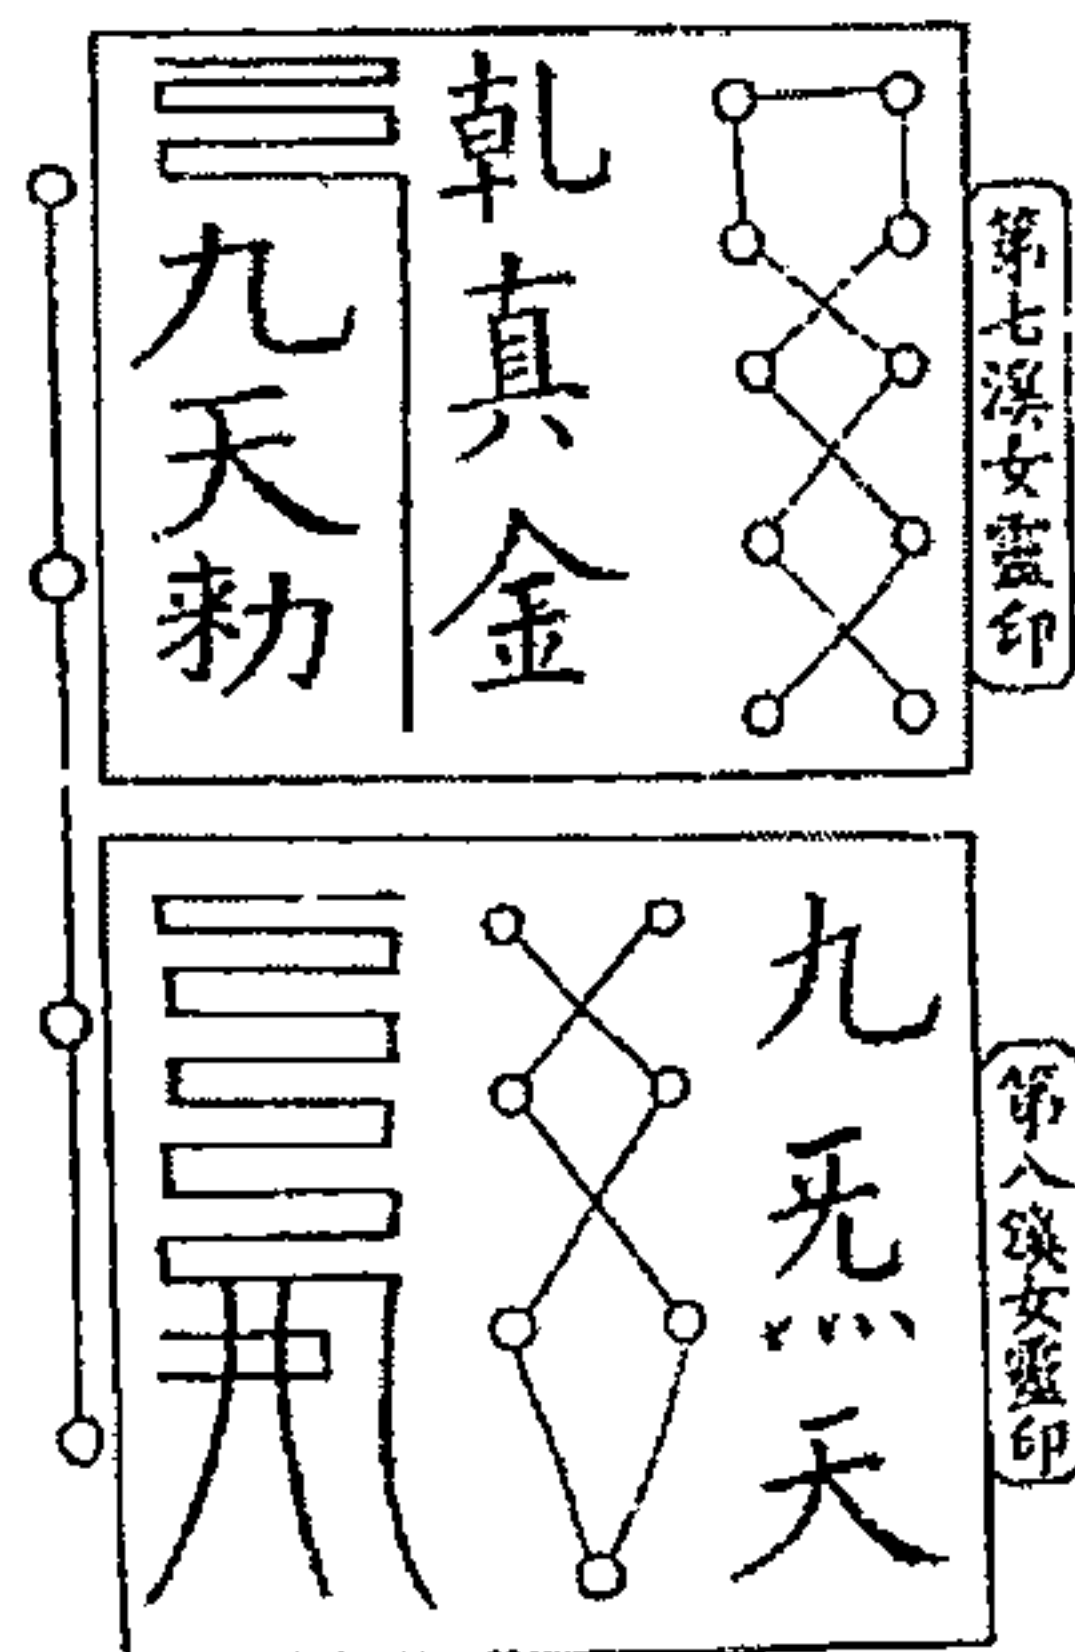 第七漠女靈印
乾真金
九天勑
第八漠女靈印
九炁天